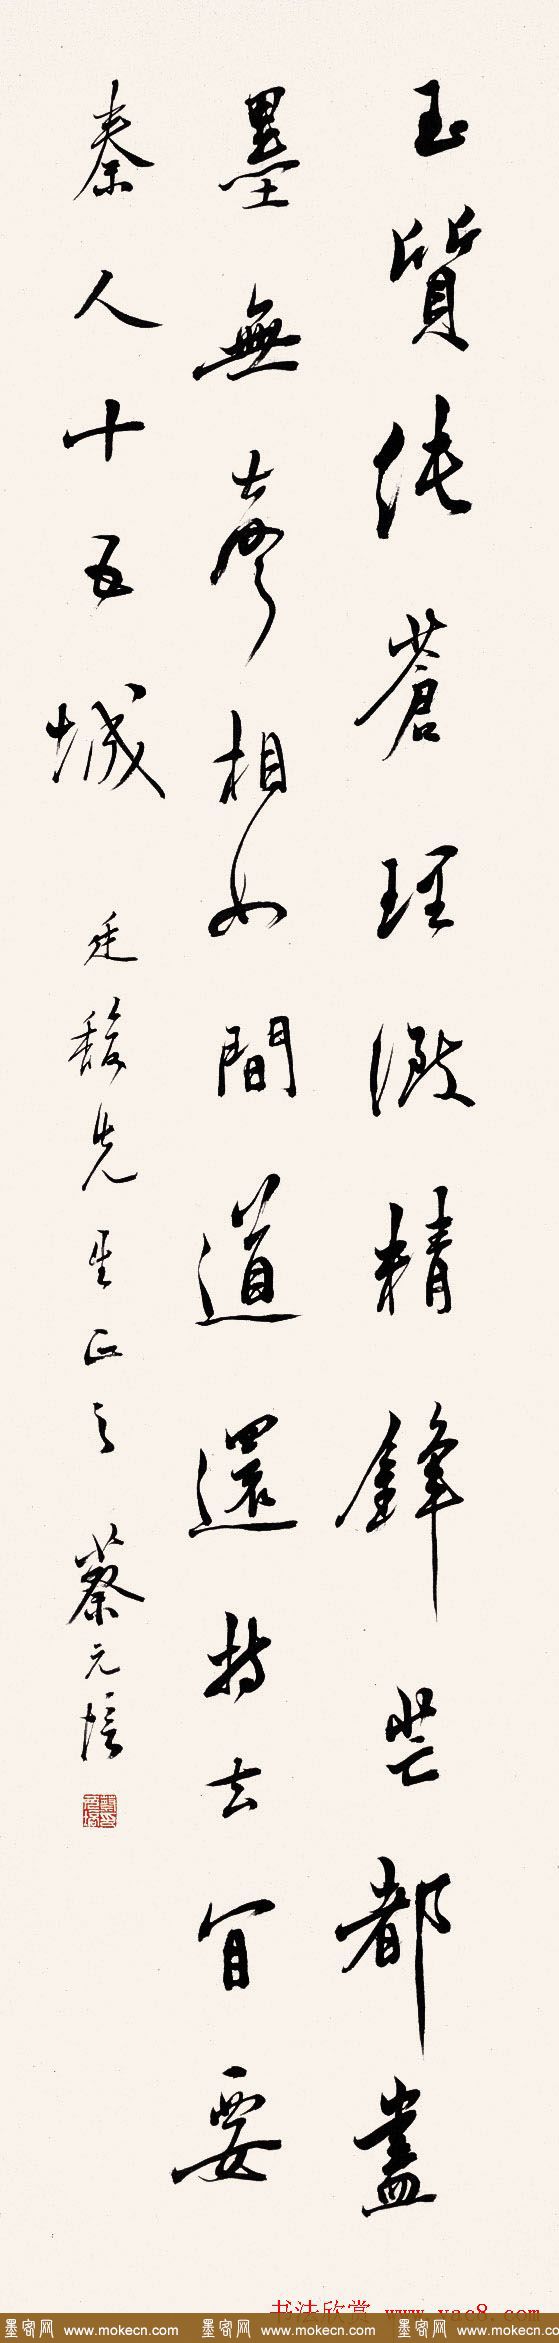 玉質純蒼理緻精鋒芒都盡
墨無聲相如間道還持去肯要
秦人十五城
廷馥先生正之 蔡元培
书法欣赏 www.yac8.com
墨客网 www.mokecn.com 墨客网 www.mokecn.com 墨客网 www.mokecn.com